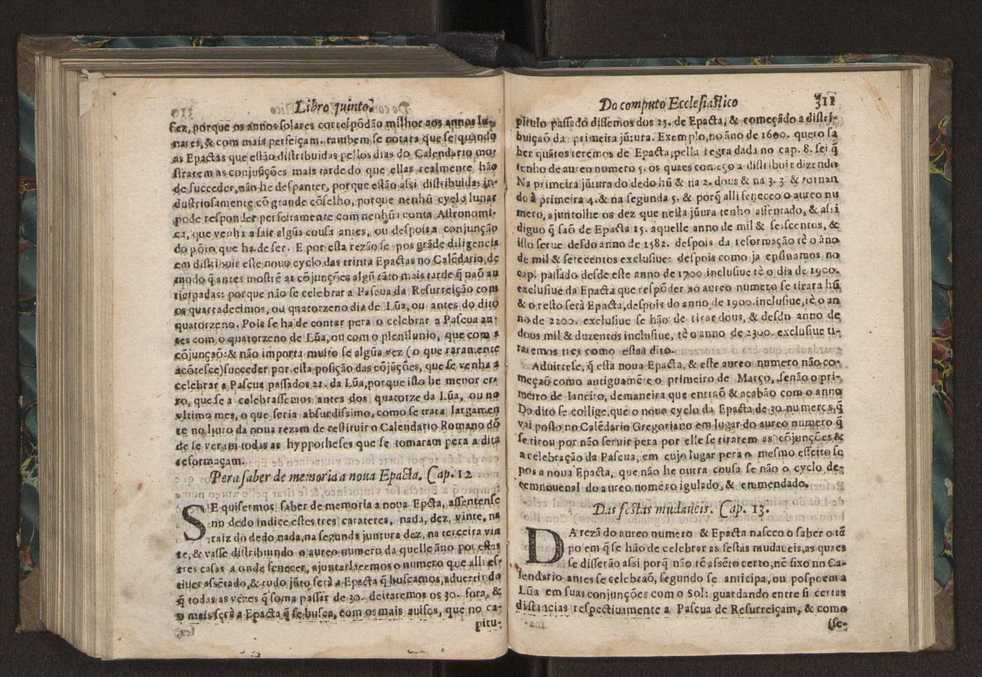 Libro quinto
ſez, porque os annos ſolares correſpõdão milhor aos annos lu-
nares, & com mais perfeiçam. tambem ſe notara que ſe quando
as Epactas que eſtão diſtribuidas pellos dias do Calendario moſ
ſtrarem as conjuções mais tarde do que ellas realmente hão
de ſucceder, não he deſpanter, porque eſtão aſsi diſtribuidas in-
duſtrioſamente cõ grande cõſelho, porque nenhũ cyclo lunar
pode reſponder perfeitamente com nenhũa conta Aſtronomi-
ca, que venha a ſair algũa couſa antes, ou deſpois a conjunção
do põto que ha de ſer. E por eſta rezão ſe pos grãde diligencia
em diſtribuir eſte nouo cyclo das trinta Epactas no Calẽdario, de
modo q̃ antes moſtrẽ as cõjunções algũ tãto mais tarde q̃ naõ an
ticipadas: porque não ſe celebrar a Paſcua da Reſurreição com
os quartadecimos, ou quatorzeno dia de Lũa, ou antes do dito
quatorzeno. Pois ſe ha de contar pera o celebrar a Paſcua an-
tes com o quatorzeno de Lũa, ou com o plenilunio, que com a
cõjunção: & não importa muito ſe algũa vez (o que raramente
acõtesce) ſucceder por eſta poſição das cõjũções, que ſe venha a
celebrar a Paſcua paſſados 21. da Lũa, porque iſto he menor er-
ro, que ſe a celebraſſemos antes dos quatorze da Lũa, ou no
vltimo mes, o que ſeria abſurdiſsimo, como ſe trata largamen
te no liuro da noua rezam de reſtituir o Calendario Romano dõ
de ſe veram todas as hyppotheſes que ſe tomaram pera a dita
reformaçam.
Pera ſaber de memoria a noua Epacta. Cap. 12
SE quiſermos ſaber de memoria a noua Epcta, aſſentenſe
no dedo indice eſtes tres carateres, nada, dez, vinte, na
raiz do dedo, nada, na ſegunda juntura dez, na terceira vin
te, & vaſſe diſtribuindo o aureo numero da quelle ãno por eſtas
tres caſas a onde fenecer, ajuntarlaremos o numero que alli eſ-
tiuer aſsẽtado, & tudo jũto ſerà a Epacta q̃ buſcamos, aduertindo
q̃ todas as vezes q̃ ſoma paſſar de 30. deitaremos os 30. fora, &
o mais ſerà a Epacta q̃ ſe buſca, com os mais auiſos, que no ca-
pitu-
Do computo Eccleſiaſtico 311
pitulo paſſado diſſemos dos 25. de Epacta, & começãdo a diſtri-
buiçaõ da primeira jũtura. Exemplo, no ãno de 1600. quero ſa
ber quãtos teremos de Epacta, pella regra dada no cap. 8. ſei q̃
tenho de aureo numero 5. os quaes começo a diſtribuir dizendo
Na primeira jũtura do dedo hũ & na 2. dous & na 3. 3 & tornan
do á primeira 4. & na ſegunda 5. & porq̃ alli feneceo o aureo nu
mero, ajuntolhe os dez que neſta jũtura tenho aſſentado, & aſsi
diguo q̃ ſaõ de Epacta 15. aquelle anno de mil & ſeiſcentos, &
iſto ſerue deſdo anno de 1582. deſpois da reformação tè o ãno
de mil & ſetecentos excluſiue: deſpois como ja enſinamos no
cap. paſſado deſde eſte anno de 1700 incluſiue tè o dia de 1900.
excluſiue da Epacta que reſpõder ao aureo numero ſe tirara hũ
& o reſto ſerà Epacta, deſpois do anno de 1900. incluſiue, tè o an
no de 2200. excluſiue ſe hão de tirar dous, & deſdo anno de
dous mil & duzentos incluſiue, tè o anno de 2300. excluſiue ti-
raremos tres como eſtaa dito.
Aduirteſe, q̃ eſta noua Epacta, & eſte aureo numero não co-
meção como antiguamẽte o primeiro de Março, ſenão o pri-
meiro de Ianeiro, demaneira que entraõ & acabão com o anno
Do dito ſe collige, que o nouo cyclo da Epacta de 30. numeros, q̃
vai poſto no Calẽdario Gregoriano em lugar do aureo numero q̃
ſe tirou por não ſeruir pera por elle ſe tirarem as cõjunções &
a celebração da Paſcua, em cujo lugar pera o meſmo effeito ſe
pos a noua Epacta, que não he outra couſa ſe não o cyclo de-
cemnouenal do aureo numero igulado, & emmendado.
Das feſtas mudaueis. Cap. 13.
DA rezã do aureo numero & Epacta naſceo o ſaber o tẽ
po em q̃ ſe hão de celebrar as feſtas mudaueis, as quaes
ſe diſſerão aſsi porq̃ não tẽ aſsẽto certo, nẽ fixo no Ca-
lendario antes ſe celebraõ, ſegundo ſe anticipa, ou poſpoem a
Lũa em ſuas conjunções com o Sol: guardando entre ſi certas
diſtancias reſpectiuamente a Paſcua de Reſurreiçam, & como
iſe-